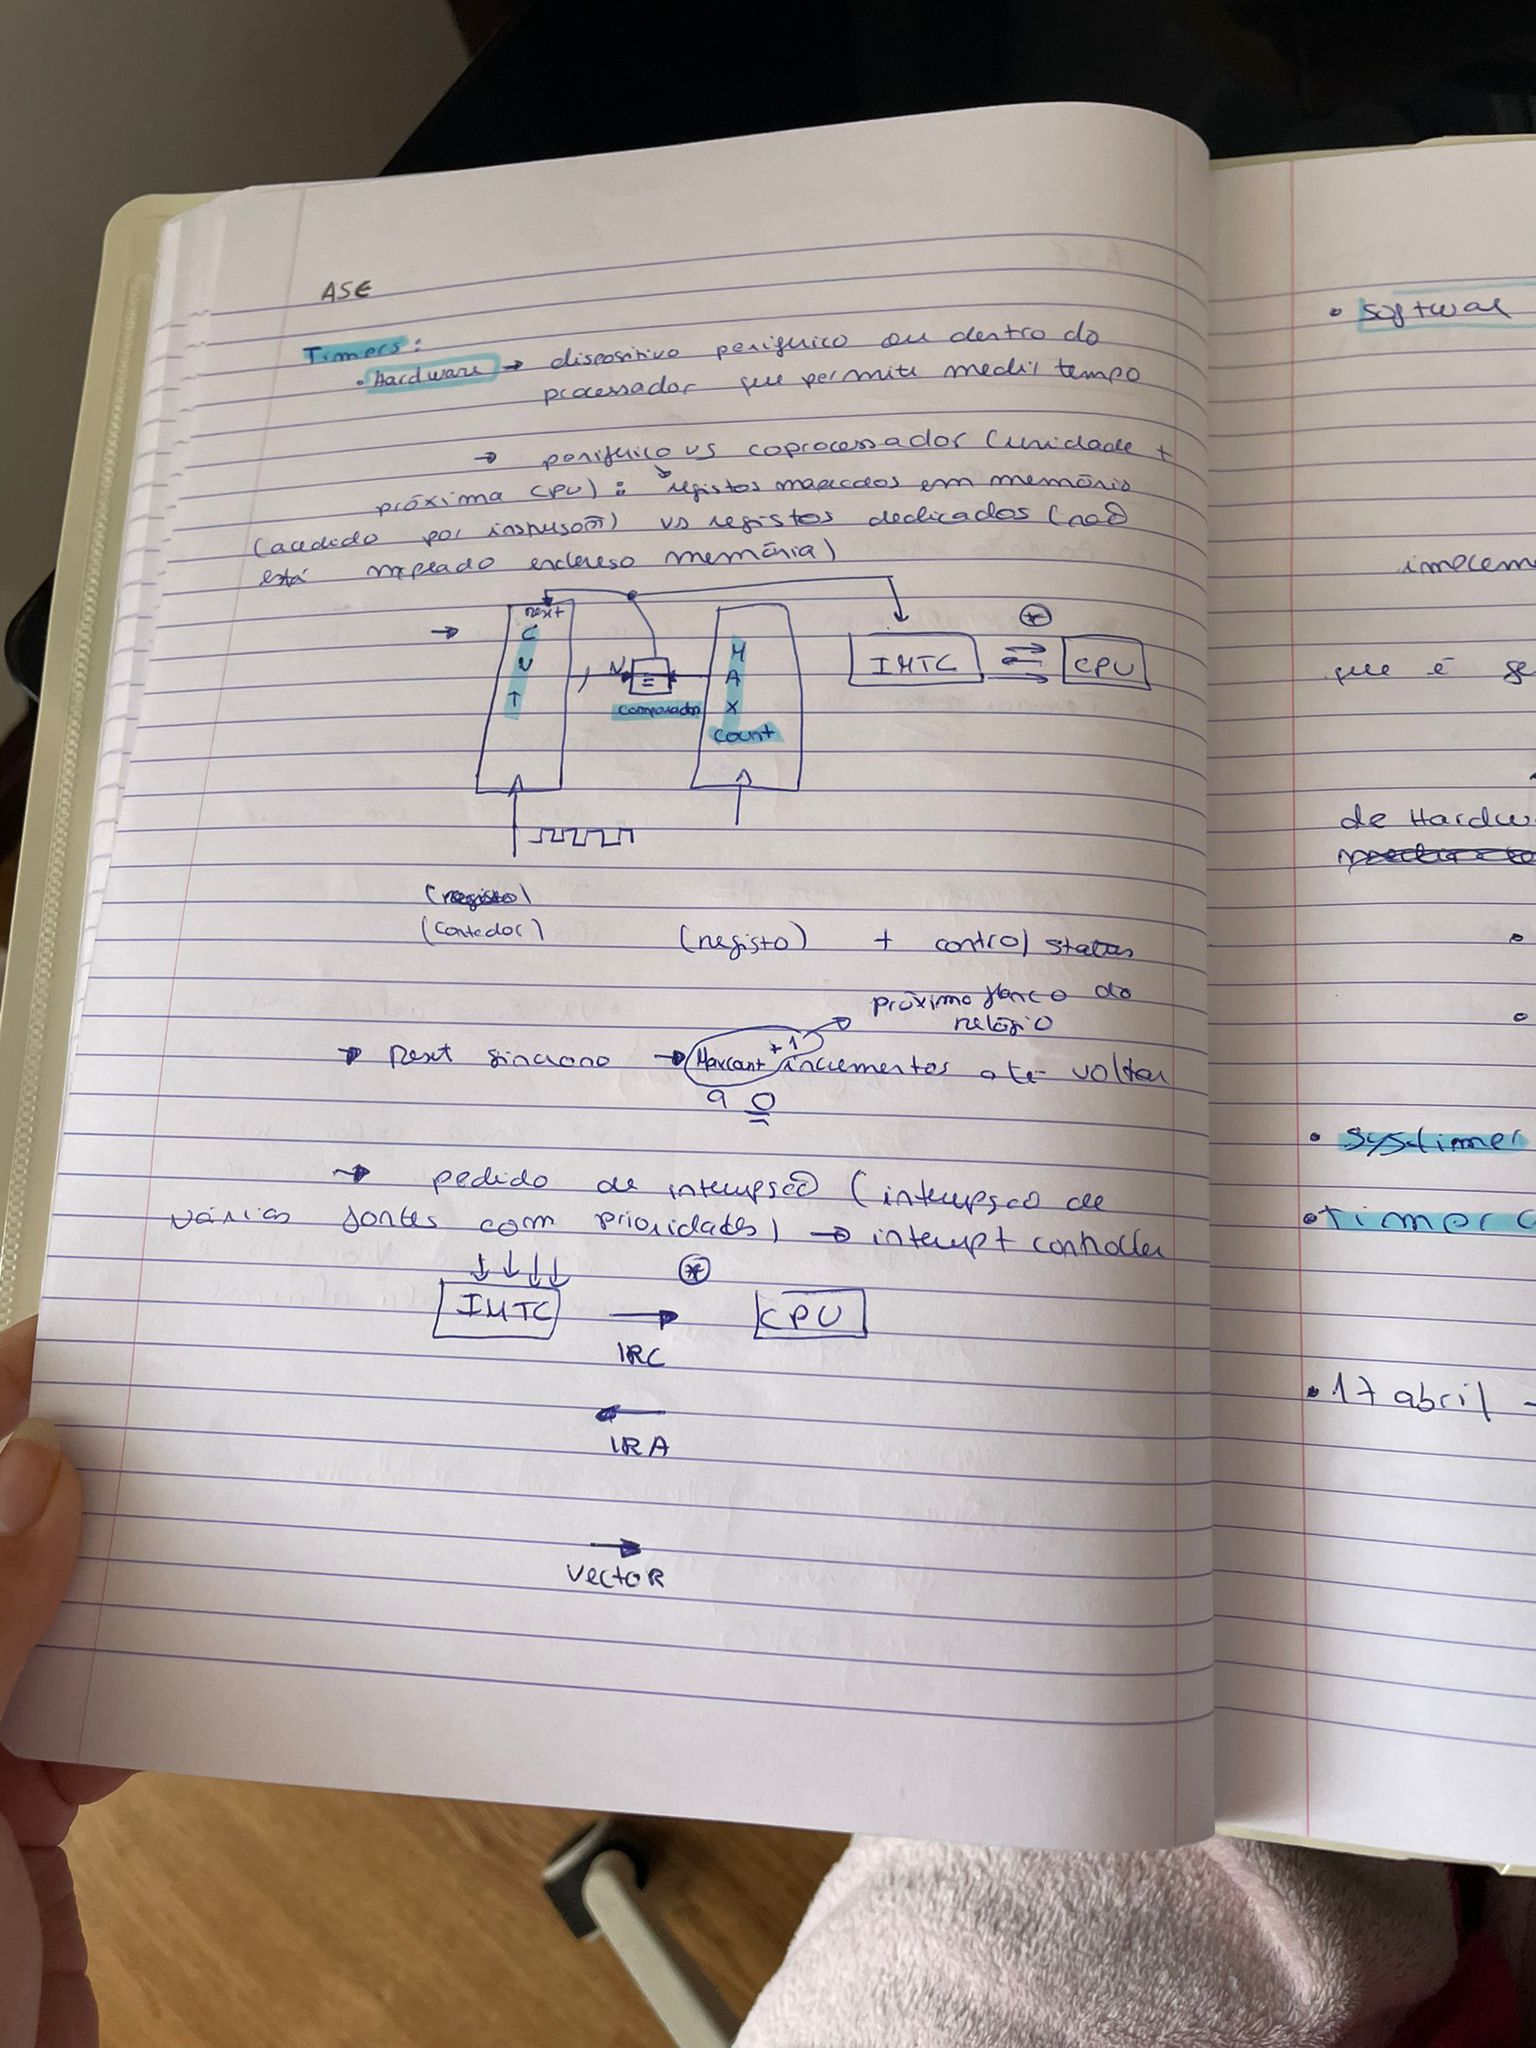 ASE
Timers:
• Hardware → dispositivo periférico ou dentro do
processador que permite medir tempo
→ periférico vs coprocessador (unidade +
próxima CPU): registos mapeados em memória
(acedido por instrusões) vs registos dedicados (não
está mapeado endereso memória)
→
reset
CNT
N
=
comparador
MAX
count
INTC
*
CPU
(registo)
(contador)
(registo) + control status
próximo flanco do
relógio
→ reset sincrono → Maxcount +1 incrementos até voltar
a 0
→ pedido de interrupsão (interrupsão de
várias fontes com prioridades) → interrupt controller
INTC
→
*
CPU
IRC
←
IRA
→
VECTOR
• Softwar
implem
que é ge
de Hardw
•
•
• Systimer
• Timer
• 17 abril -